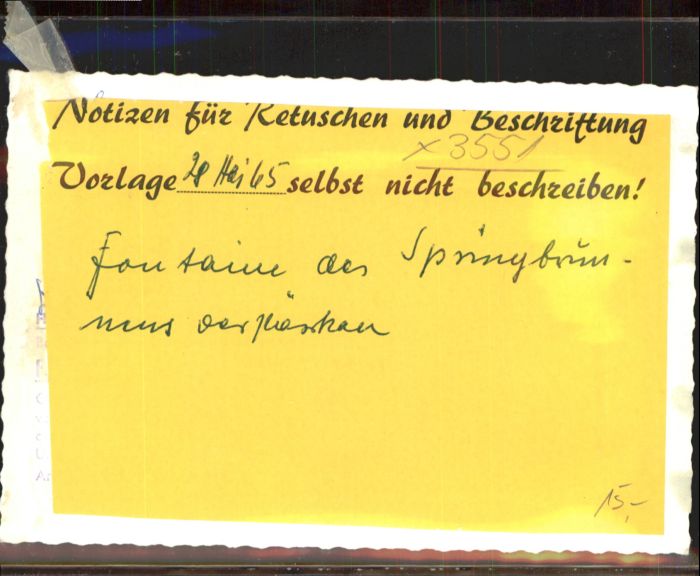 Notizen für Retuschen und Beschriftung
x 3551
Vorlage 28 Mai 65 selbst nicht beschreiben!
Fontaine des Springbrun-
nens verstärken
15,-